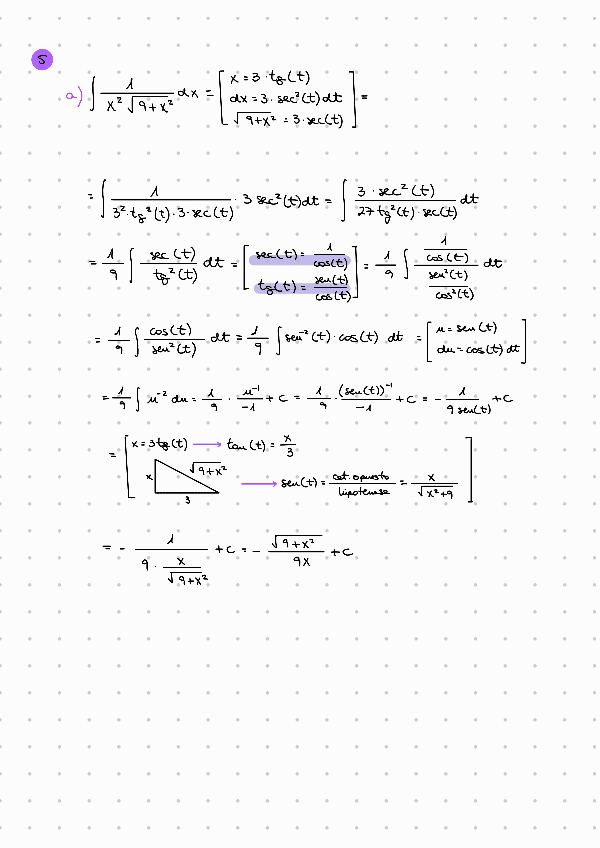 5
a) ∫ 1/(x² √(9+x²)) dx = [ x = 3·tg(t) ; dx = 3·sec²(t) dt ; √(9+x²) = 3·sec(t) ] =
= ∫ 1/(3²·tg²(t)·3·sec(t)) · 3 sec²(t) dt = ∫ (3·sec²(t))/(27 tg²(t)·sec(t)) dt
= 1/9 ∫ sec(t)/tg²(t) dt = [ sec(t) = 1/cos(t) ; tg(t) = sen(t)/cos(t) ] = 1/9 ∫ (1/cos(t))/(sen²(t)/cos²(t)) dt
= 1/9 ∫ cos(t)/sen²(t) dt = 1/9 ∫ sen⁻²(t)·cos(t) dt = [ u = sen(t) ; du = cos(t) dt ]
= 1/9 ∫ u⁻² du = 1/9 · u⁻¹/-1 + C = 1/9 · (sen(t))⁻¹/-1 + C = - 1/(9 sen(t)) + C
= [ x = 3tg(t) → tan(t) = x/3
x √(9+x²) 3 → sen(t) = cat. opuesto/hipotenusa = x/√(x²+9) ]
= - 1/(9 · x/√(9+x²)) + C = - √(9+x²)/(9x) + C